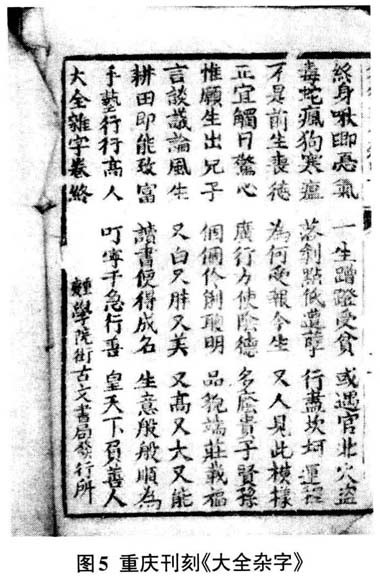 終身啾唧忍氣 一生蹭蹬受貧 或遇官非火盜
毒蛇瘋狗寒瘟 落剎點低遭孽 行盡坎坷運
不是前生喪德 為何受報今生 又人見此模樣
正宜觸目驚心 廣行方便陰德 多產貴子賢孫
惟願生出兒子 個個伶俐聰明 品貌端莊載福
言談議論風生 又白又胖又美 又高又大又能
耕田即能致富 讀書便得成名 生意般般順為
手藝行行高人 叮嚀千急行善 皇天不負善人
大全雜字卷終 學院街古文書局發行所
图5 重庆刊刻《大全杂字》